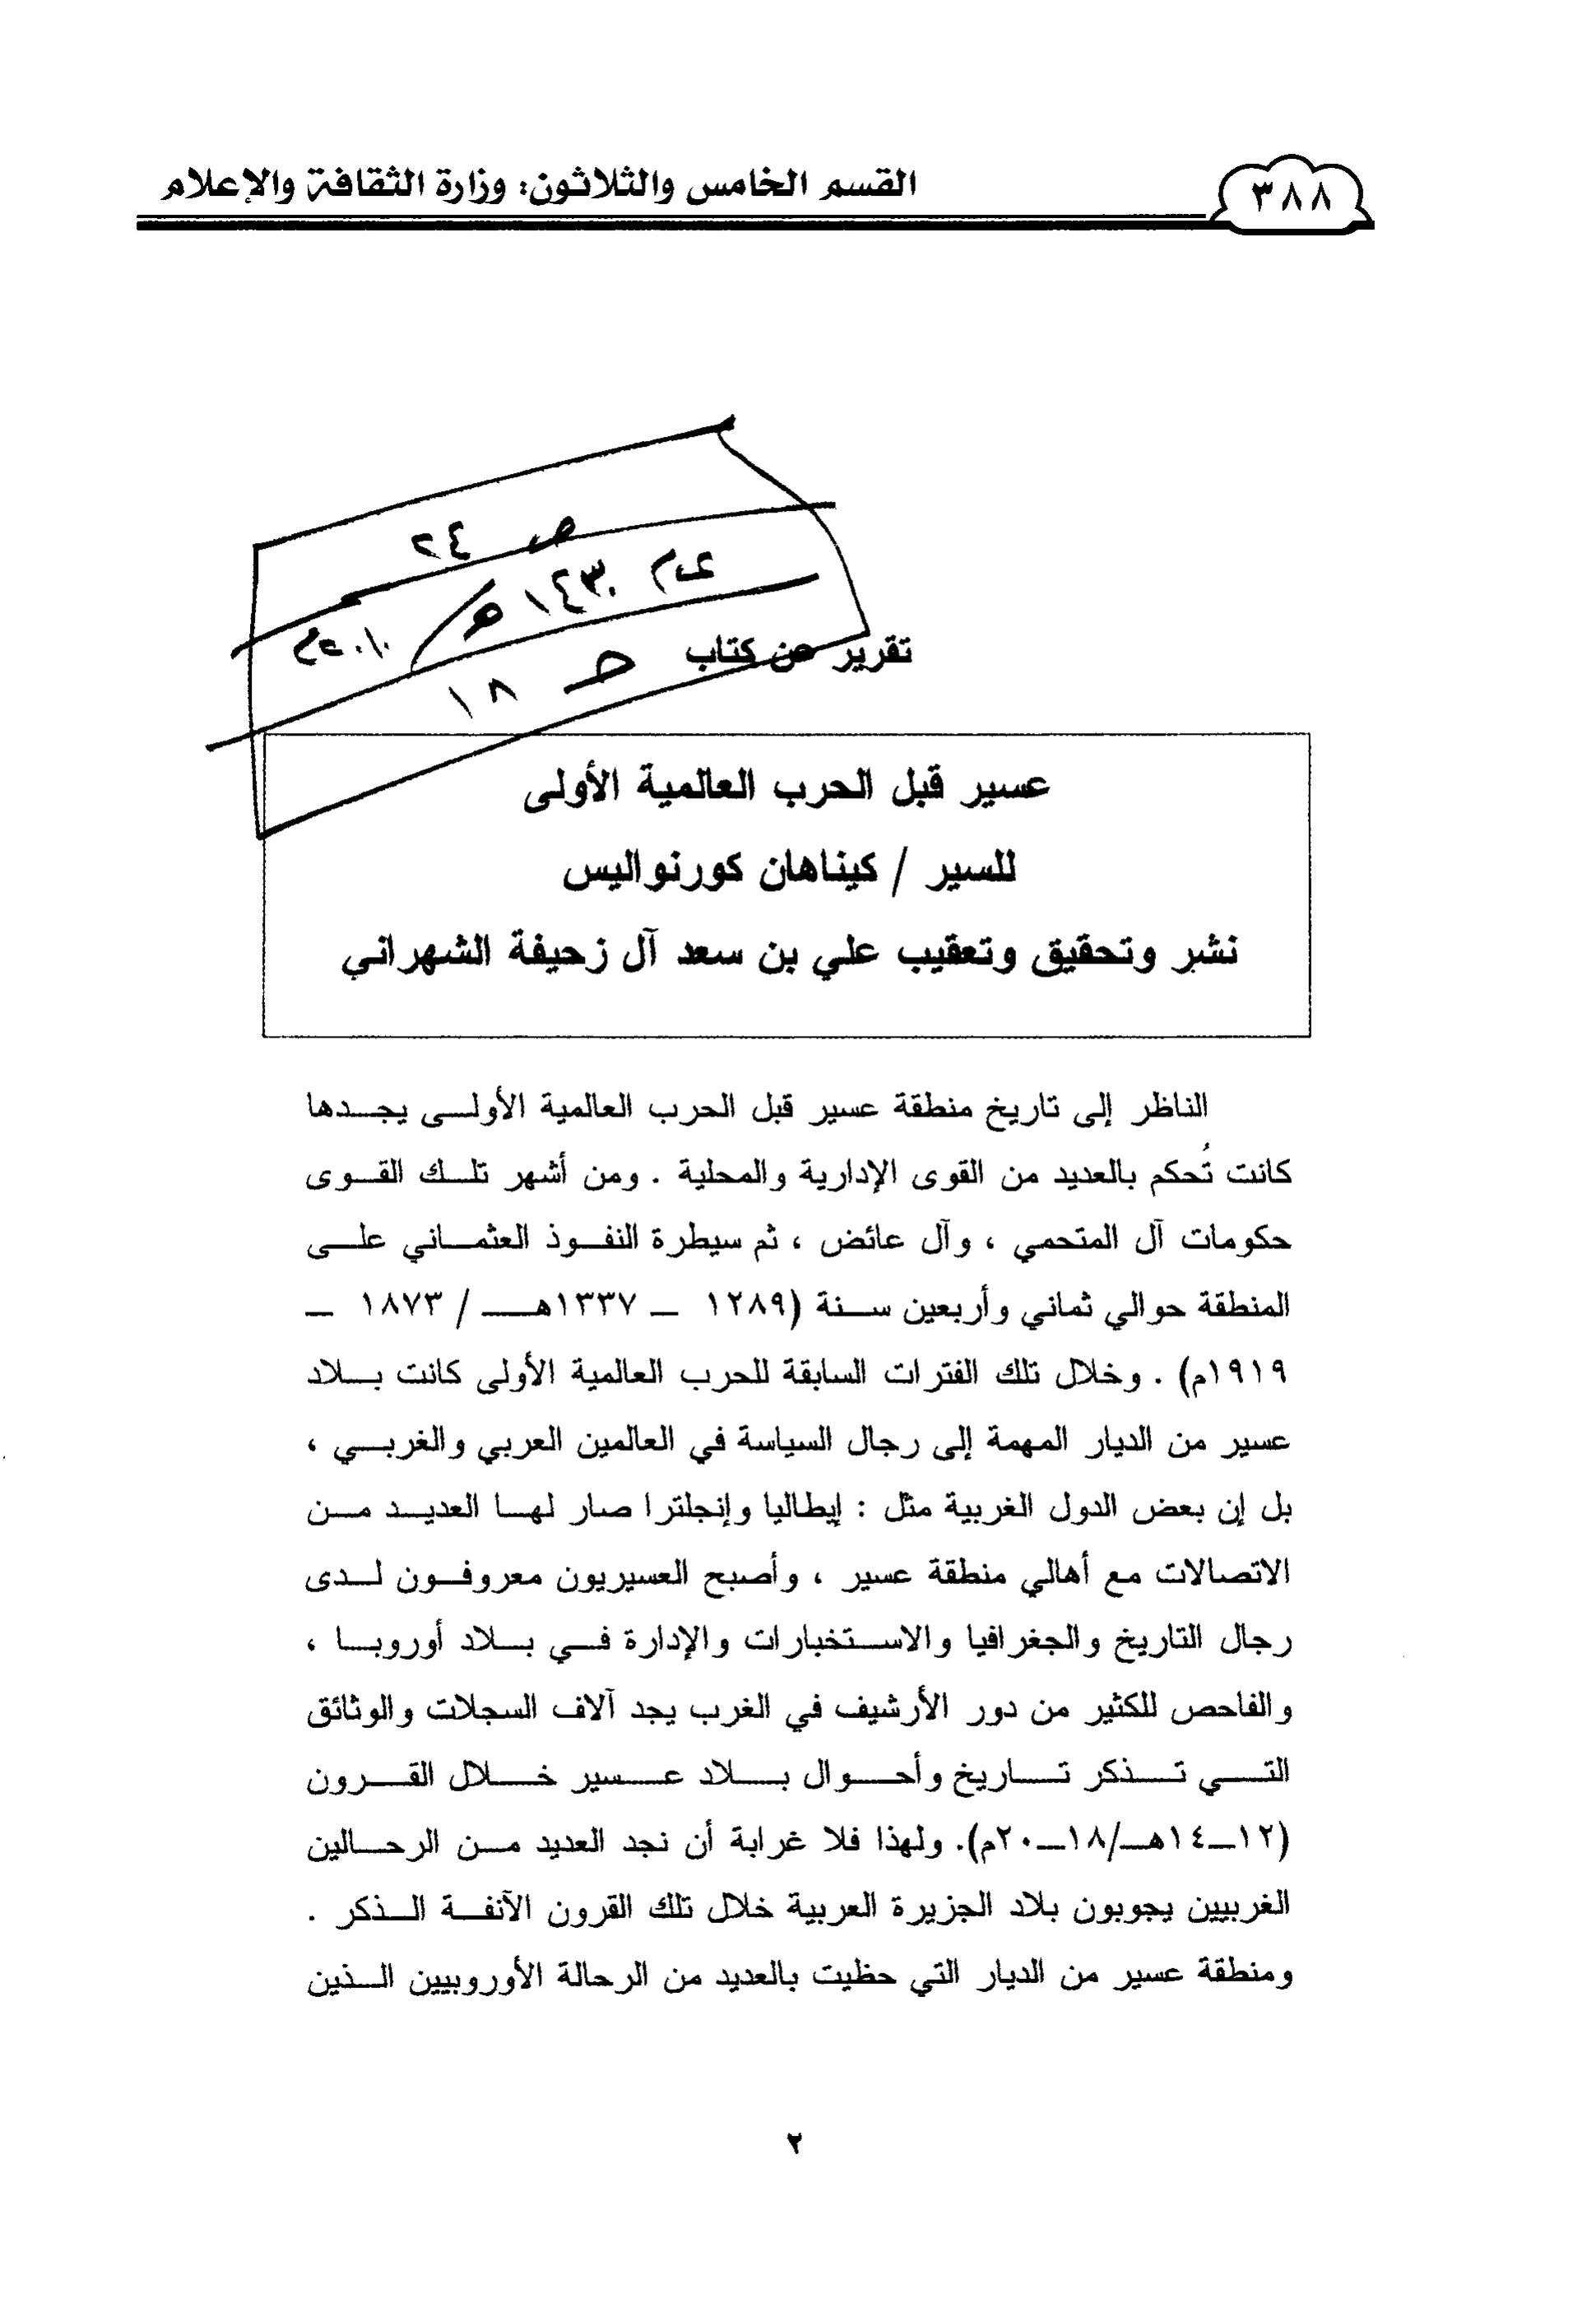 ٣٨٨
القسم الخامس والثلاثون: وزارة الثقافة والإعلام
ص ٢٤
عام ١٤٣٠هـ/٢٠١٠م
١٨
تقرير عن كتاب
عسير قبل الحرب العالمية الأولى
للسير / كيناهان كورنواليس
نشر وتحقيق وتعقيب علي بن سعد آل زحيفة الشهراني
الناظر إلى تاريخ منطقة عسير قبل الحرب العالمية الأولى يجدها
كانت تُحكم بالعديد من القوى الإدارية والمحلية . ومن أشهر تلك القوى
حكومات آل المتحمي ، وآل عائض ، ثم سيطرة النفوذ العثماني على
المنطقة حوالي ثماني وأربعين سنة (١٢٨٩ – ١٣٣٧هـ / ١٨٧٣ –
١٩١٩م) . وخلال تلك الفترات السابقة للحرب العالمية الأولى كانت بلاد
عسير من الديار المهمة إلى رجال السياسة في العالمين العربي والغربي ،
بل إن بعض الدول الغربية مثل : إيطاليا وإنجلترا صار لها العديد من
الاتصالات مع أهالي منطقة عسير ، وأصبح العسيريون معروفون لدى
رجال التاريخ والجغرافيا والاستخبارات والإدارة في بلاد أوروبا ،
والفاحص للكثير من دور الأرشيف في الغرب يجد آلاف السجلات والوثائق
التي تذكر تاريخ وأحوال بلاد عسير خلال القرون
(١٢–١٤هـ/١٨–٢٠م). ولهذا فلا غرابة أن نجد العديد من الرحالين
الغربيين يجوبون بلاد الجزيرة العربية خلال تلك القرون الآنفة الذكر .
ومنطقة عسير من الديار التي حظيت بالعديد من الرحالة الأوروبيين الذين
٢